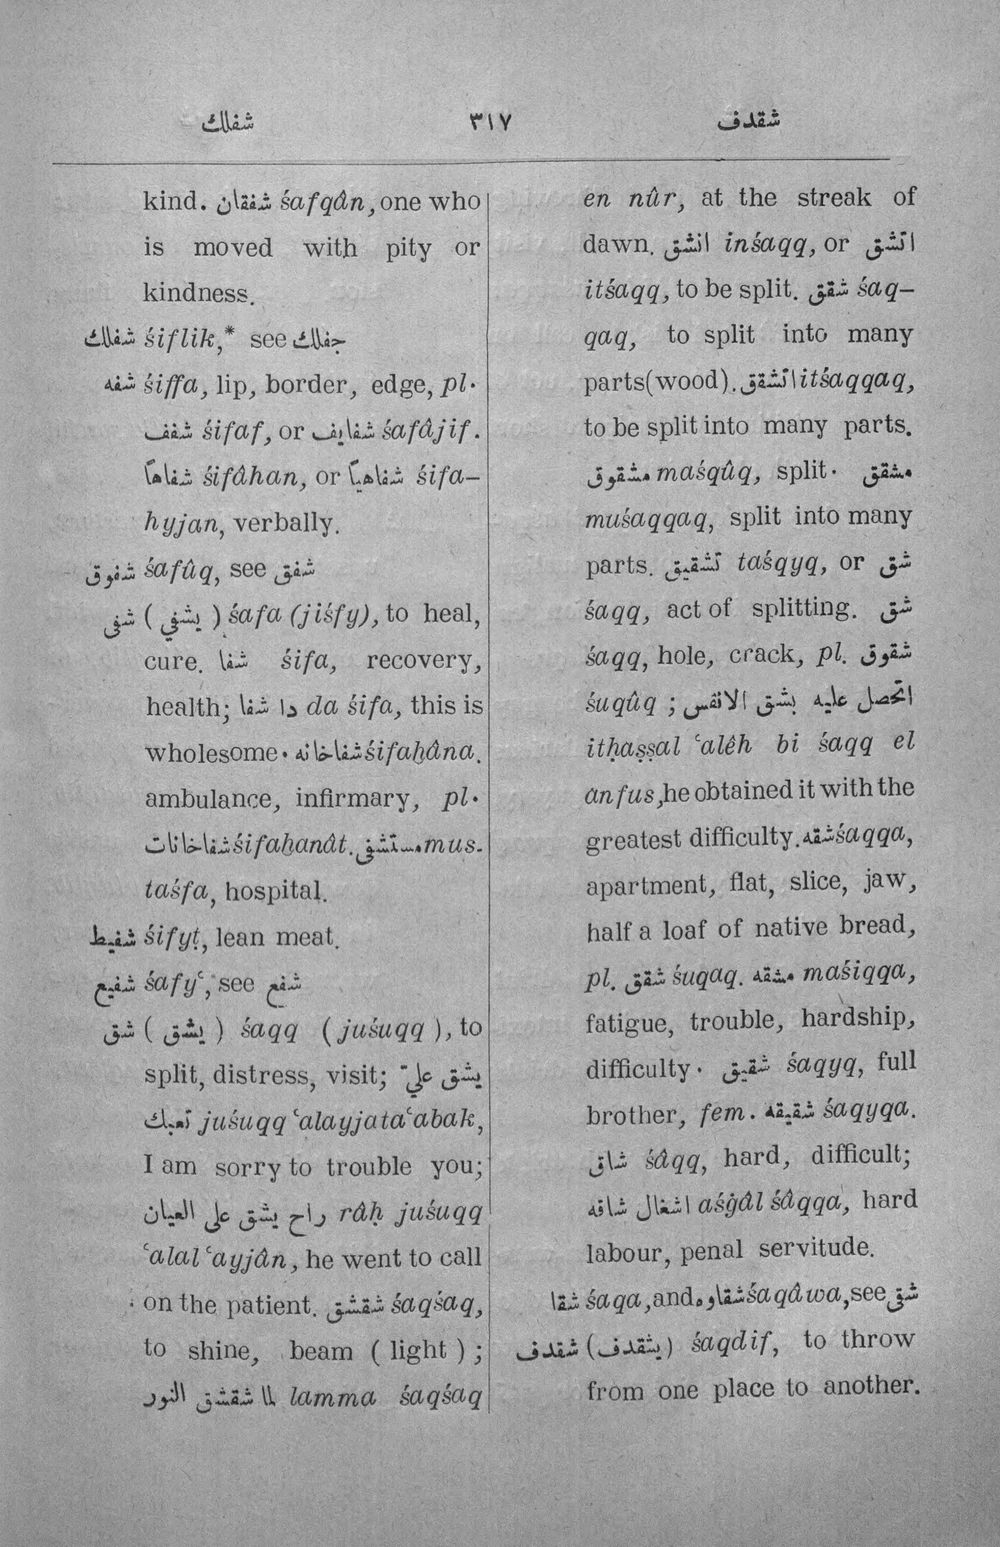 شفلك ٣١٧ شقدف
kind. شفقان śafqân, one who
is moved with pity or
kindness.
شفلك śiflik,* see جفلك
شفه śiffa, lip, border, edge, pl.
شفف śifaf, or شفايف śafâjif.
شفاهاً śifâhan, or شفاهياً śifa-
hyjan, verbally.
شفوق śafûq, see شفق
شفى ( يشفي ) śafa (jiśfy), to heal,
cure. شفا śifa, recovery,
health; دا شفا da śifa, this is
wholesome. شفاخانه śifaḫâna.
ambulance, infirmary, pl.
شفاخانات śifaḫanât. مستشفى mus-
taśfa, hospital.
شفيط śifyṭ, lean meat.
شفيع śafyʿ, see شفع
شق ( يشق ) śaqq (juśuqq), to
split, distress, visit; يشق عليّ
تعبك juśuqq ʿalayjataʿabak,
I am sorry to trouble you;
راح يشق على العيان râḥ juśuqq
ʿalal ʿayjân, he went to call
on the patient. شقشق śaqśaq,
to shine, beam ( light ) ;
لما شقشق النور lamma śaqśaq
en nûr, at the streak of
dawn. انشق inśaqq, or اتشق
itśaqq, to be split. شقق śaq-
qaq, to split into many
parts(wood). اتشقق itśaqqaq,
to be split into many parts.
مشقوق maśqûq, split. مشقق
muśaqqaq, split into many
parts. تشقيق taśqyq, or شق
śaqq, act of splitting. شق
śaqq, hole, crack, pl. شقوق
śuqûq ; اتحصل عليه بشق الانفس
itḥaṣṣal ʿalêh bi śaqq el
anfus, he obtained it with the
greatest difficulty. شقه śaqqa,
apartment, flat, slice, jaw,
half a loaf of native bread,
pl. شقق śuqaq. مشقه maśiqqa,
fatigue, trouble, hardship,
difficulty. شقيق śaqyq, full
brother, fem. شقيقه śaqyqa.
شاق śâqq, hard, difficult;
اشغال شاقه aśġâl śâqqa, hard
labour, penal servitude.
شقا śaqa, and شقاوه śaqâwa, see شقى
شقدف (يشقدف) śaqdif, to throw
from one place to another.